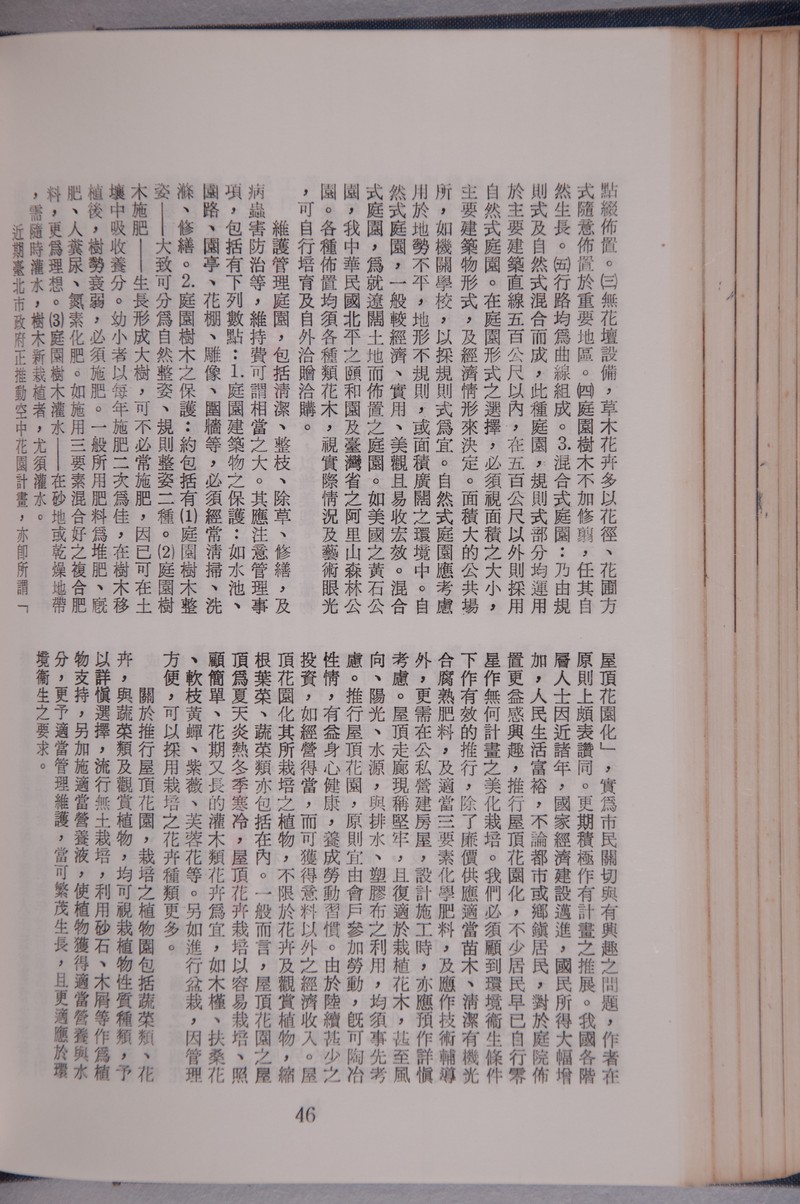 點綴佈置。㈢無花壇設備，草木花卉多以花徑、花圃方
式隨意佈置於重要地區。㈣庭園樹木不加修剪，任其自
然生長。㈤行路均爲曲線組成。3.混合式庭園：乃由規
則式及自然式混合而成，此種庭園，規則式部分均運用
於主要建築直線五百公尺以內，在五百公尺以外則採用
自然式庭園。在庭園形式之選擇，必須視面積之大小，
主要建築物形式，及經濟情形來決定。面積大的公共場
所，如機關學校，以採規則式爲宜。自然式庭園應考慮
用於地勢不平，地形不規則，或面積廣闊之環境中。自
然式庭園，一般較經濟、實用、美觀且易收宏效。混合
式庭園，爲就遼闊土地而佈置之庭園。如美國之黃石公
園，我中華民國北平之頤和園及臺灣省之阿里山森林公
園。各種佈置均須各種類花木，視實際情況及藝術眼光
，可自行培育及自外洽贈洽購。
維護管理庭園，包括清潔、整枝、除草、修繕，及
病蟲害防治等，維持費可謂相當之大。其應注意管理事
項，包括有下列數點：1.庭園建築物之保護：如水池、
園路、園亭、花棚、雕像、圍牆等，必須經常清掃、洗
滌、修繕。2.庭園樹木之保護：約包括有⑴庭園樹木整
姿——大致可分爲自然整姿、規則整姿二種。⑵庭園樹
木施肥——生長形成大樹，可不必常施肥，因已可在土
壤中吸收養分。幼小者以每年施肥二次爲佳，在樹木移
植後，樹勢衰弱，必須施肥。一般所用肥料爲堆肥、廐
肥、人糞尿、氮素化肥。如施用三要素混合好之複合肥
料，更爲理想。⑶庭園樹木灌水——在砂地或乾燥地帶
，需隨時灌水，樹木新栽植者，尤須灌水。
近期臺北市政府正推動空中花園計畫，亦卽所謂「
屋頂花園化」，實爲市民關切與有興趣之問題，作者在
原則上頗表讚同。更期積極作有計畫之推展。我國各階
層人士因近諸年，國家經濟建設邁進，國民所得大幅增
加，人民生活富裕，不論都市或鄉鎮居民，對於庭院佈
置更益感興趣，推行屋頂花園化，不少居民早已自行零
星作無何計畫之美化栽培。我們必須顧到環境衛生條件
下作有效的推行，除了廉價供應適當苗木、清潔有機光
合腐熟肥料，及適當三要素化學肥料，及應作技術輔導
外，更需在公私營建房屋，設計施工時，亦應預作詳愼
考慮。屋頂走廊現稱堅牢，且復適於栽植花木，甚至風
向、陽光、水源，與排水、塑膠布之利用，均須事先考
慮。推行屋頂花園，原則宜由會戶參加勞動，旣可陶冶
性情，有益身心健康，養成勞動習慣。由於陸續甚少之
投資，如經營得當，而可獲得意料以外之經濟收入。屋
頂花園化其所栽培之植物，不限於花卉及觀賞植物，縮
根葉菜、蔬菜類亦包括在內。一般而言，屋頂花園之屋
頂爲夏天炎熱冬季寒冷，屋頂花卉栽培以容易栽培、照
顧簡單、花期又長的灌木類花卉爲宜，如木槿、扶桑花
、軟枝黃蟬、紫薇、芙蓉花等。另如進行盆栽，因管理
方便，可以採用栽培之花卉種類更多。
關於推行屋頂花園，栽培之植物園包括蔬菜類、花
卉，與蔬菜類及觀賞植物，均可視栽植物性質種類，予
以詳愼選擇，流行無土栽培，利用砂石、木屑等作爲植
物支持，另加施適當營養液，使植物獲得適當營養與水
分，更予適當管理維護，當可繁茂生長，且更適應於環
境衛生之要求。
46